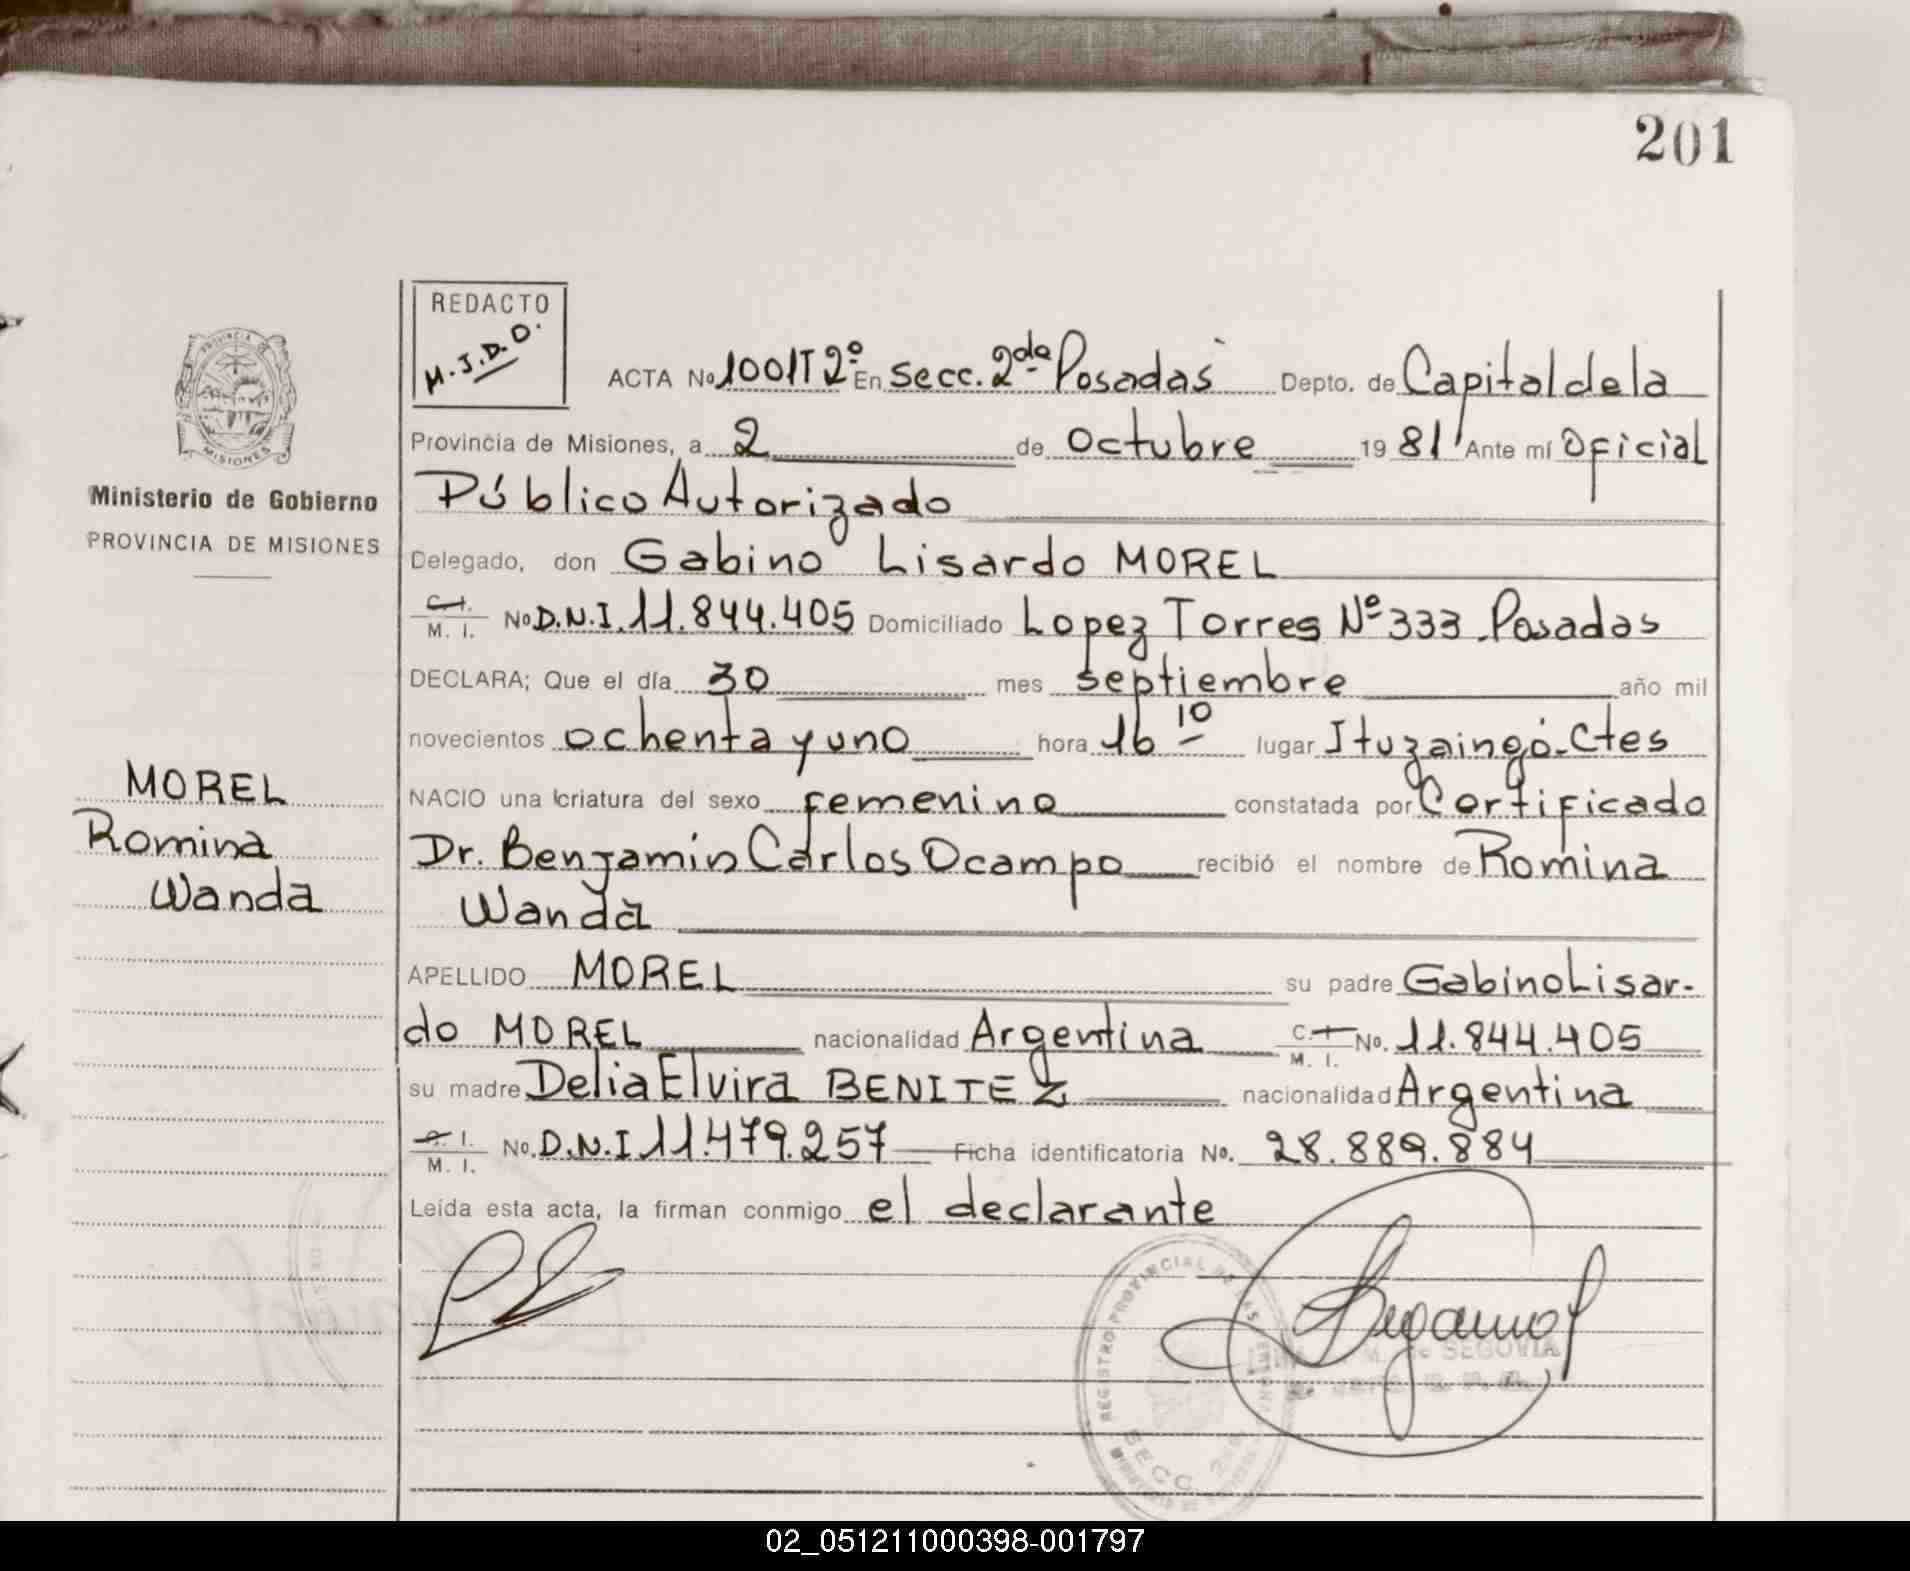 201
REDACTO
M.J.D.O.
ACTA No 1001 T 2º En secc. 2da Posadas Depto. de Capital de la
Provincia de Misiones, a 2 de Octubre 1981 Ante mí Oficial
Público Autorizado
Delegado, don Gabino Lisardo MOREL
C.I. M. I. No D.N.I. 11.844.405 Domiciliado Lopez Torres Nº 333 - Posadas
DECLARA; Que el día 30 mes septiembre año mil
novecientos ochenta y uno hora 16 10 lugar Ituzaingó - Ctes
NACIO una criatura del sexo femenino constatada por Certificado
Dr. Benjamín Carlos Ocampo recibió el nombre de Romina
Wanda
APELLIDO MOREL su padre Gabino Lisar-
do MOREL nacionalidad Argentina C. I. M. I. No. 11.844.405
su madre Delia Elvira BENITEZ nacionalidad Argentina
C. I. M. I. No. D.N.I 11.479.257 Ficha identificatoria No. 28.889.884
Leída esta acta, la firman conmigo el declarante
PROVINCIA DE
MISIONES
Ministerio de Gobierno
PROVINCIA DE MISIONES
MOREL
Romina
Wanda
REGISTRO PROVINCIAL DE LAS
SECC. 2
M. de SEGOVIA
02_051211000398-001797